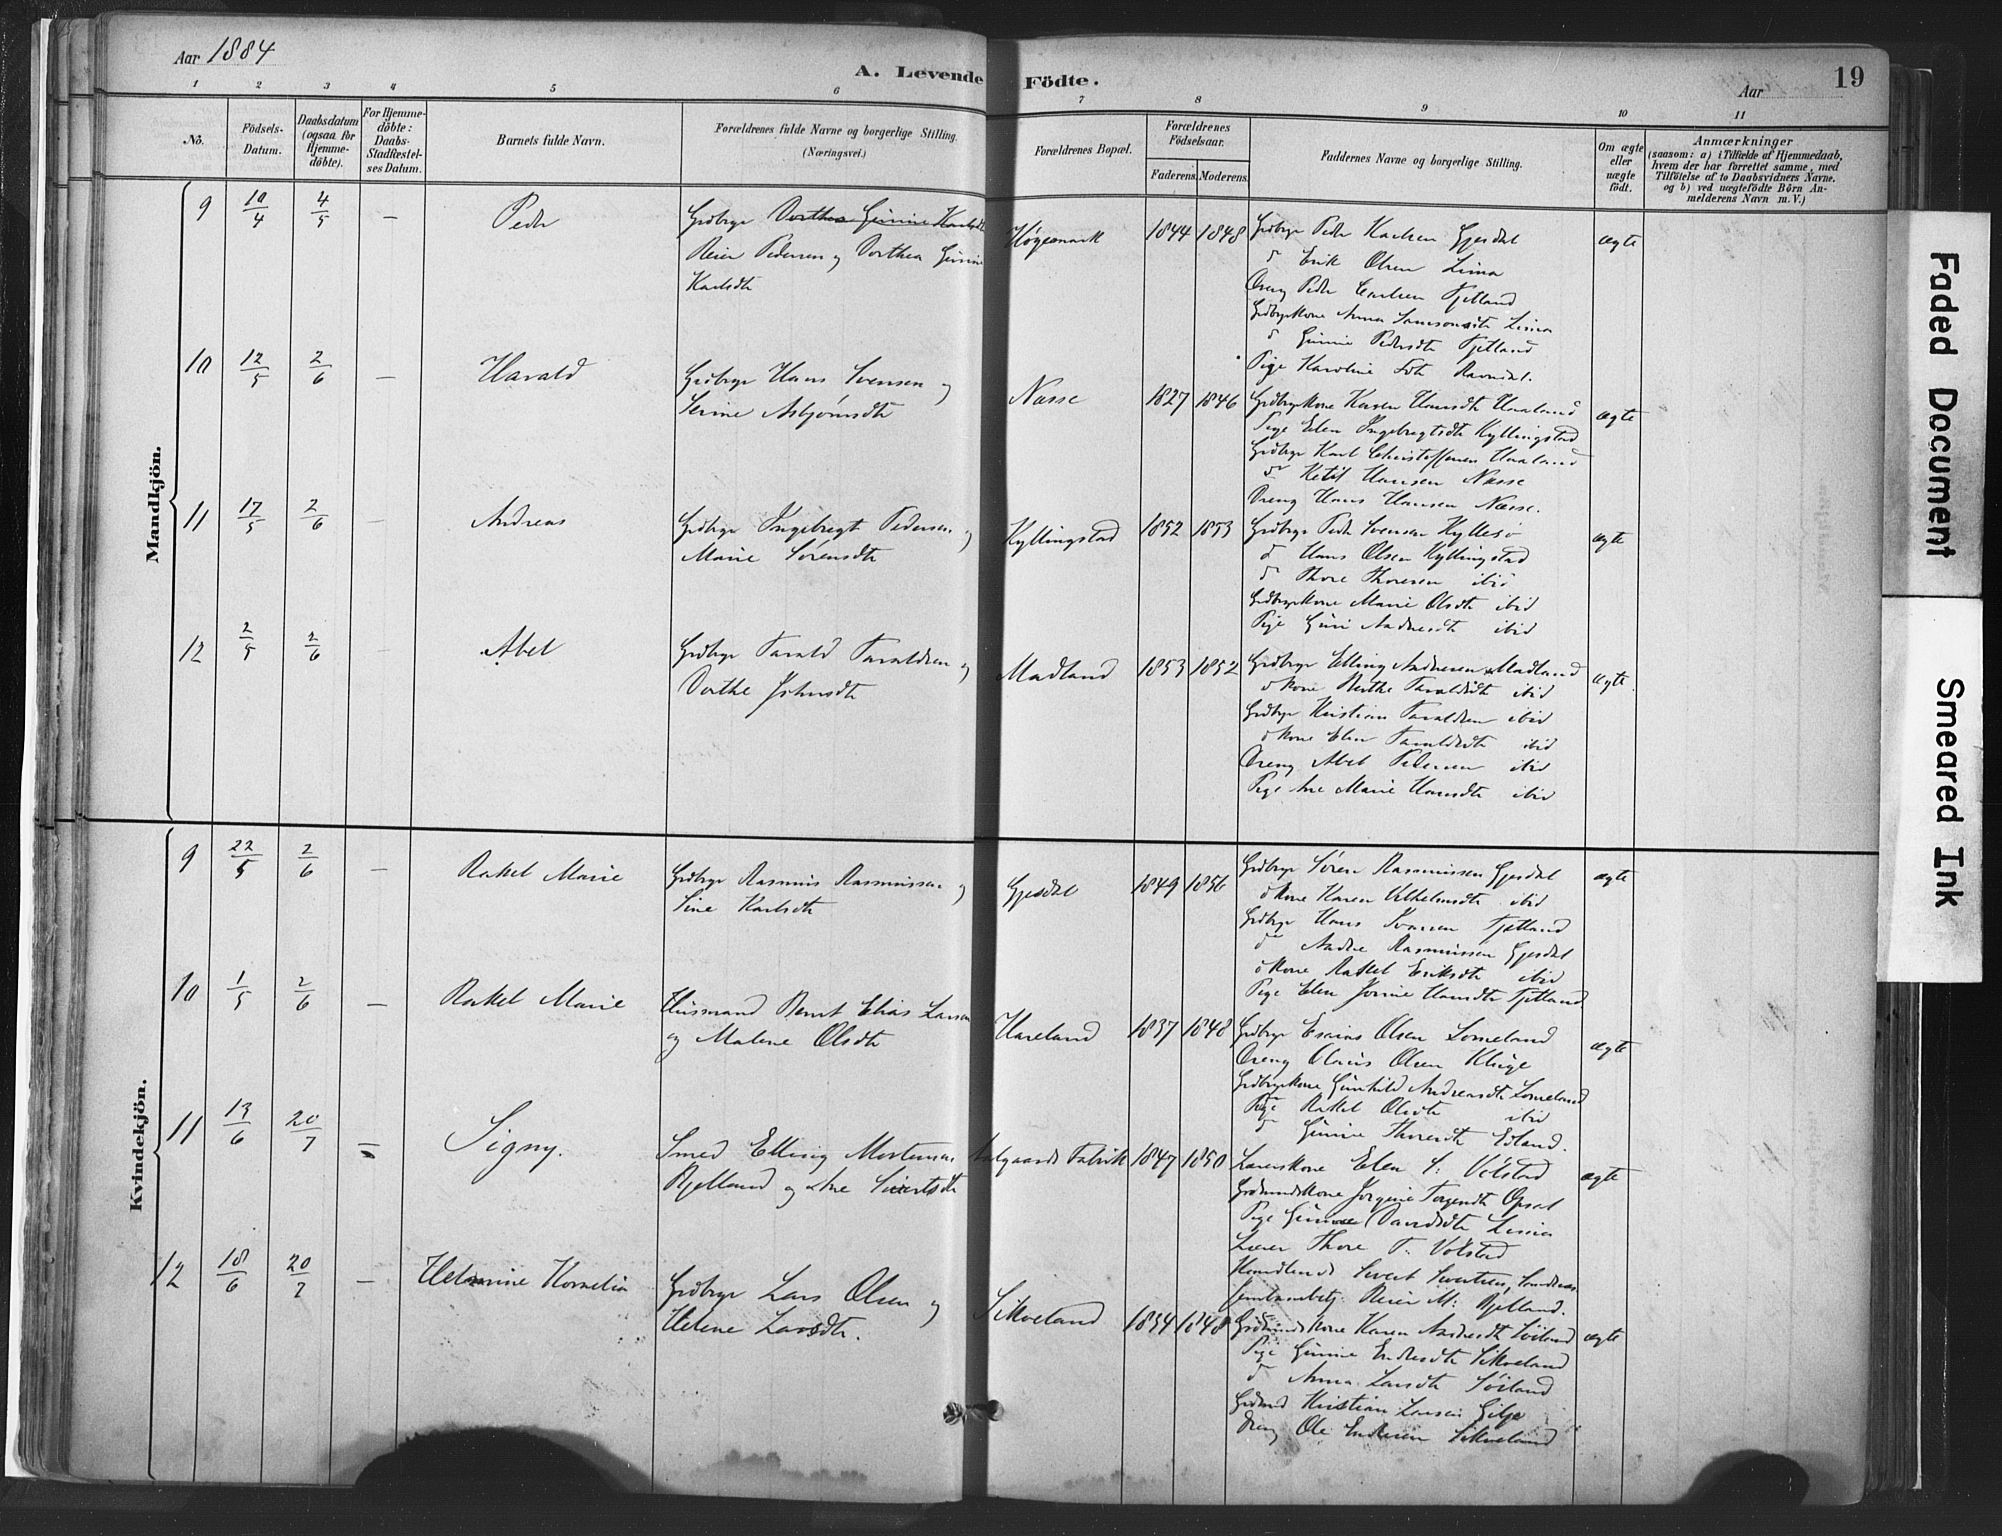 Aar 1884
A. Levende Födte.
Aar
19
1 2 3 4 5 6 7 8 9 10 11
No.
Födsels-Datum.
Daabsdatum (ogsaa for Hjemme-döbte).
For Hjemme-döbte: Daabs-Stadfæstel-ses Datum.
Barnets fulde Navn.
Forældrenes fulde Navne og borgerlige Stilling. (Næringsvei.)
Forældrenes Bopæl.
Forældrenes Födselsaar.
Faderens. Moderens.
Faddernes Navne og borgerlige Stilling.
Om ægte eller uægte födt.
Anmærkninger
(saasom: a) i Tilfælde af Hjemmedaab, hvem der har forrettet samme, med Tilföielse af to Daabsvidners Navne. og b) ved uægtefödte Börn An-melderens Navn m. V.)
Mandkjön.
9 10/4 4/5 — Peder
Grdbrgr Dorthea Gurine Karlsdt
Reier Pedersen og Dorthea Gurine
Karlsdtr
Høgemark 1844 1848
Grdbrgr Peder Karlsen Gjesdal
do Erik Olsen Lima
Dreng Peder Carlsen Fjelland
Grdbrgrkone Anna Samsonsdtr Lima
do Gurine Pedersdtr Fjelland
Pige Karoline Ravndal.
ægte
10 12/5 2/6 — Harald
Grdbrgr Hans Svensen og
Serine Asbjørnsdtr
Næsse 1827 1846
Grdbrgrkone Karen Hansdtr Haaland
Pige Elen Ingebregtsdtr Kyllingstad
Grdbrgr Karl Christoffersen Haaland
do Ketil Hansen Næsse
Dreng Hans Hansen Næsse.
ægte
11 17/5 2/6 — Andreas
Grdbrgr Ingebregt Pedersen og
Marie Sørensdtr
Kyllingstad 1852 1853
Grdbrgr Peder Svensen Kyllesø
do Hans Olsen Kyllingstad
do Thore Thoresen ibid
Grdbrgrkone Marie Olsdtr ibid
Pige Guri Andersdtr ibid
ægte
12 2/5 2/6 — Abel
Grdbrgr Tarald Taraldsen og
Dorthe Johnsdtr
Madland 1853 1852
Grdbrgr Elling Andersen Madland
do kone Berthe Taraldsdtr ibid
Grdbrgr Kristian Taraldsen ibid
do kone Elen Taraldsdtr ibid
Dreng Abel Pedersen ibid
Pige Ane Marie Hansdtr ibid
ægte
Kvindekjön.
9 22/5 2/6 — Rakel Marie
Grdbrgr Rasmus Rasmussen og
Sine Karlsdtr
Gjesdal 1849 1856
Grdbrgr Sören Rasmussen Gjesdal
do kone Karen Vilhelmsdtr ibid
Grdbrgr Hans Fjelland
do Andre Rasmussen Gjesdal
do kone Rakel Eriksdtr ibid
Pige Elen Jorine Hansdtr Fjelland
ægte
10 1/5 2/6 — Rakel Marie
Husmand Bernt Elias Larsen
og Malene Olsdtr
Haveland 1837 1848
Grdbrgr Esaias Olsen Lomeland
Dreng Olaus Olsen Kluge
Grdbrgrkone Gunhild Andreasdtr Lomeland
Pige Rakel Olsdtr ibid
do Gurine Thoresdtr Edland.
ægte
11 13/6 20/7 — Signy.
Smed Elling Mortensen
Bjelland og Ane Sivertsdtr
Aalgaards Fabrik 1847 1850
Lærerkone Elen S: Volstad
Grdmandskone Jorgine Torgersdtr Opsal
Pige Gurine Davidsdtr Lima
Lærer Thore T. Volstad
Handlende Sivert Sivertsen, Sandnes
Reier M: Bjelland.
ægte
12 18/6 20/7 — Helmine Kornelia
Grdbrgr Lars Olsen og
Helene Larsdtr.
Sikveland 1834 1848
Grdmandskone Karen Andersdtr Söiland
Pige Gurine Endresdtr Sikveland
do Anna Larsdtr Söiland
Grdmd Kristian Larsen Gilje
Dreng Ole Endresen Sikveland
ægte
Faded Document
Smeared Ink